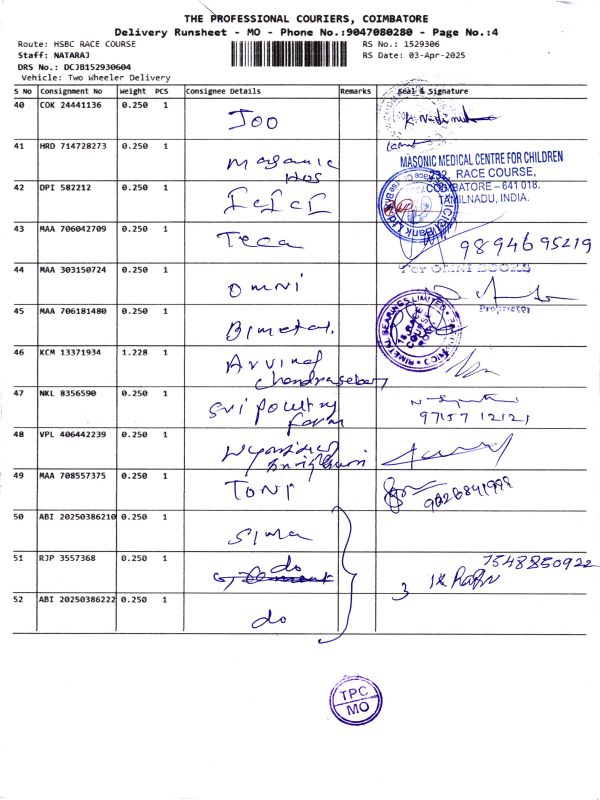 THE PROFESSIONAL COURIERS, COIMBATORE
Delivery Runsheet - MO - Phone No.:9047080280 - Page No.:4
Route: HSBC RACE COURSE
RS No.: 1529306
Staff: NATARAJ
RS Date: 03-Apr-2025
DRS No.: DCJB152930604
Vehicle: Two Wheeler Delivery
S No Consignment No Weight PCS Consignee Details Remarks Seal & Signature
40 COK 24441136 0.250 1 Joo
41 HRD 714728273 0.250 1
MASONIC MEDICAL CENTRE FOR CHILDREN
232, RACE COURSE,
COIMBATORE - 641 018.
TAMILNADU, INDIA.
42 DPI 582212 0.250 1
ICICI Bank Ltd
43 MAA 706042709 0.250 1 Teca
9894695219
44 MAA 303150724 0.250 1 Omni
For OMNI
Proprietor
45 MAA 706181480 0.250 1 Bimetal.
BIMETAL BEARINGS LIMITED
18, RACE COURSE ROAD
46 KCM 13371934 1.228 1 Arvind
47 NKL 8356590 0.250 1 Sri poultry
farm
97157 12121
48 VPL 406442239 0.250 1
49 MAA 708557375 0.250 1 Toni
50 ABI 20250386210 0.250 1 Sima
51 RJP 3557368 0.250 1 do
7548850922
3
52 ABI 20250386222 0.250 1 do
TPC
MO